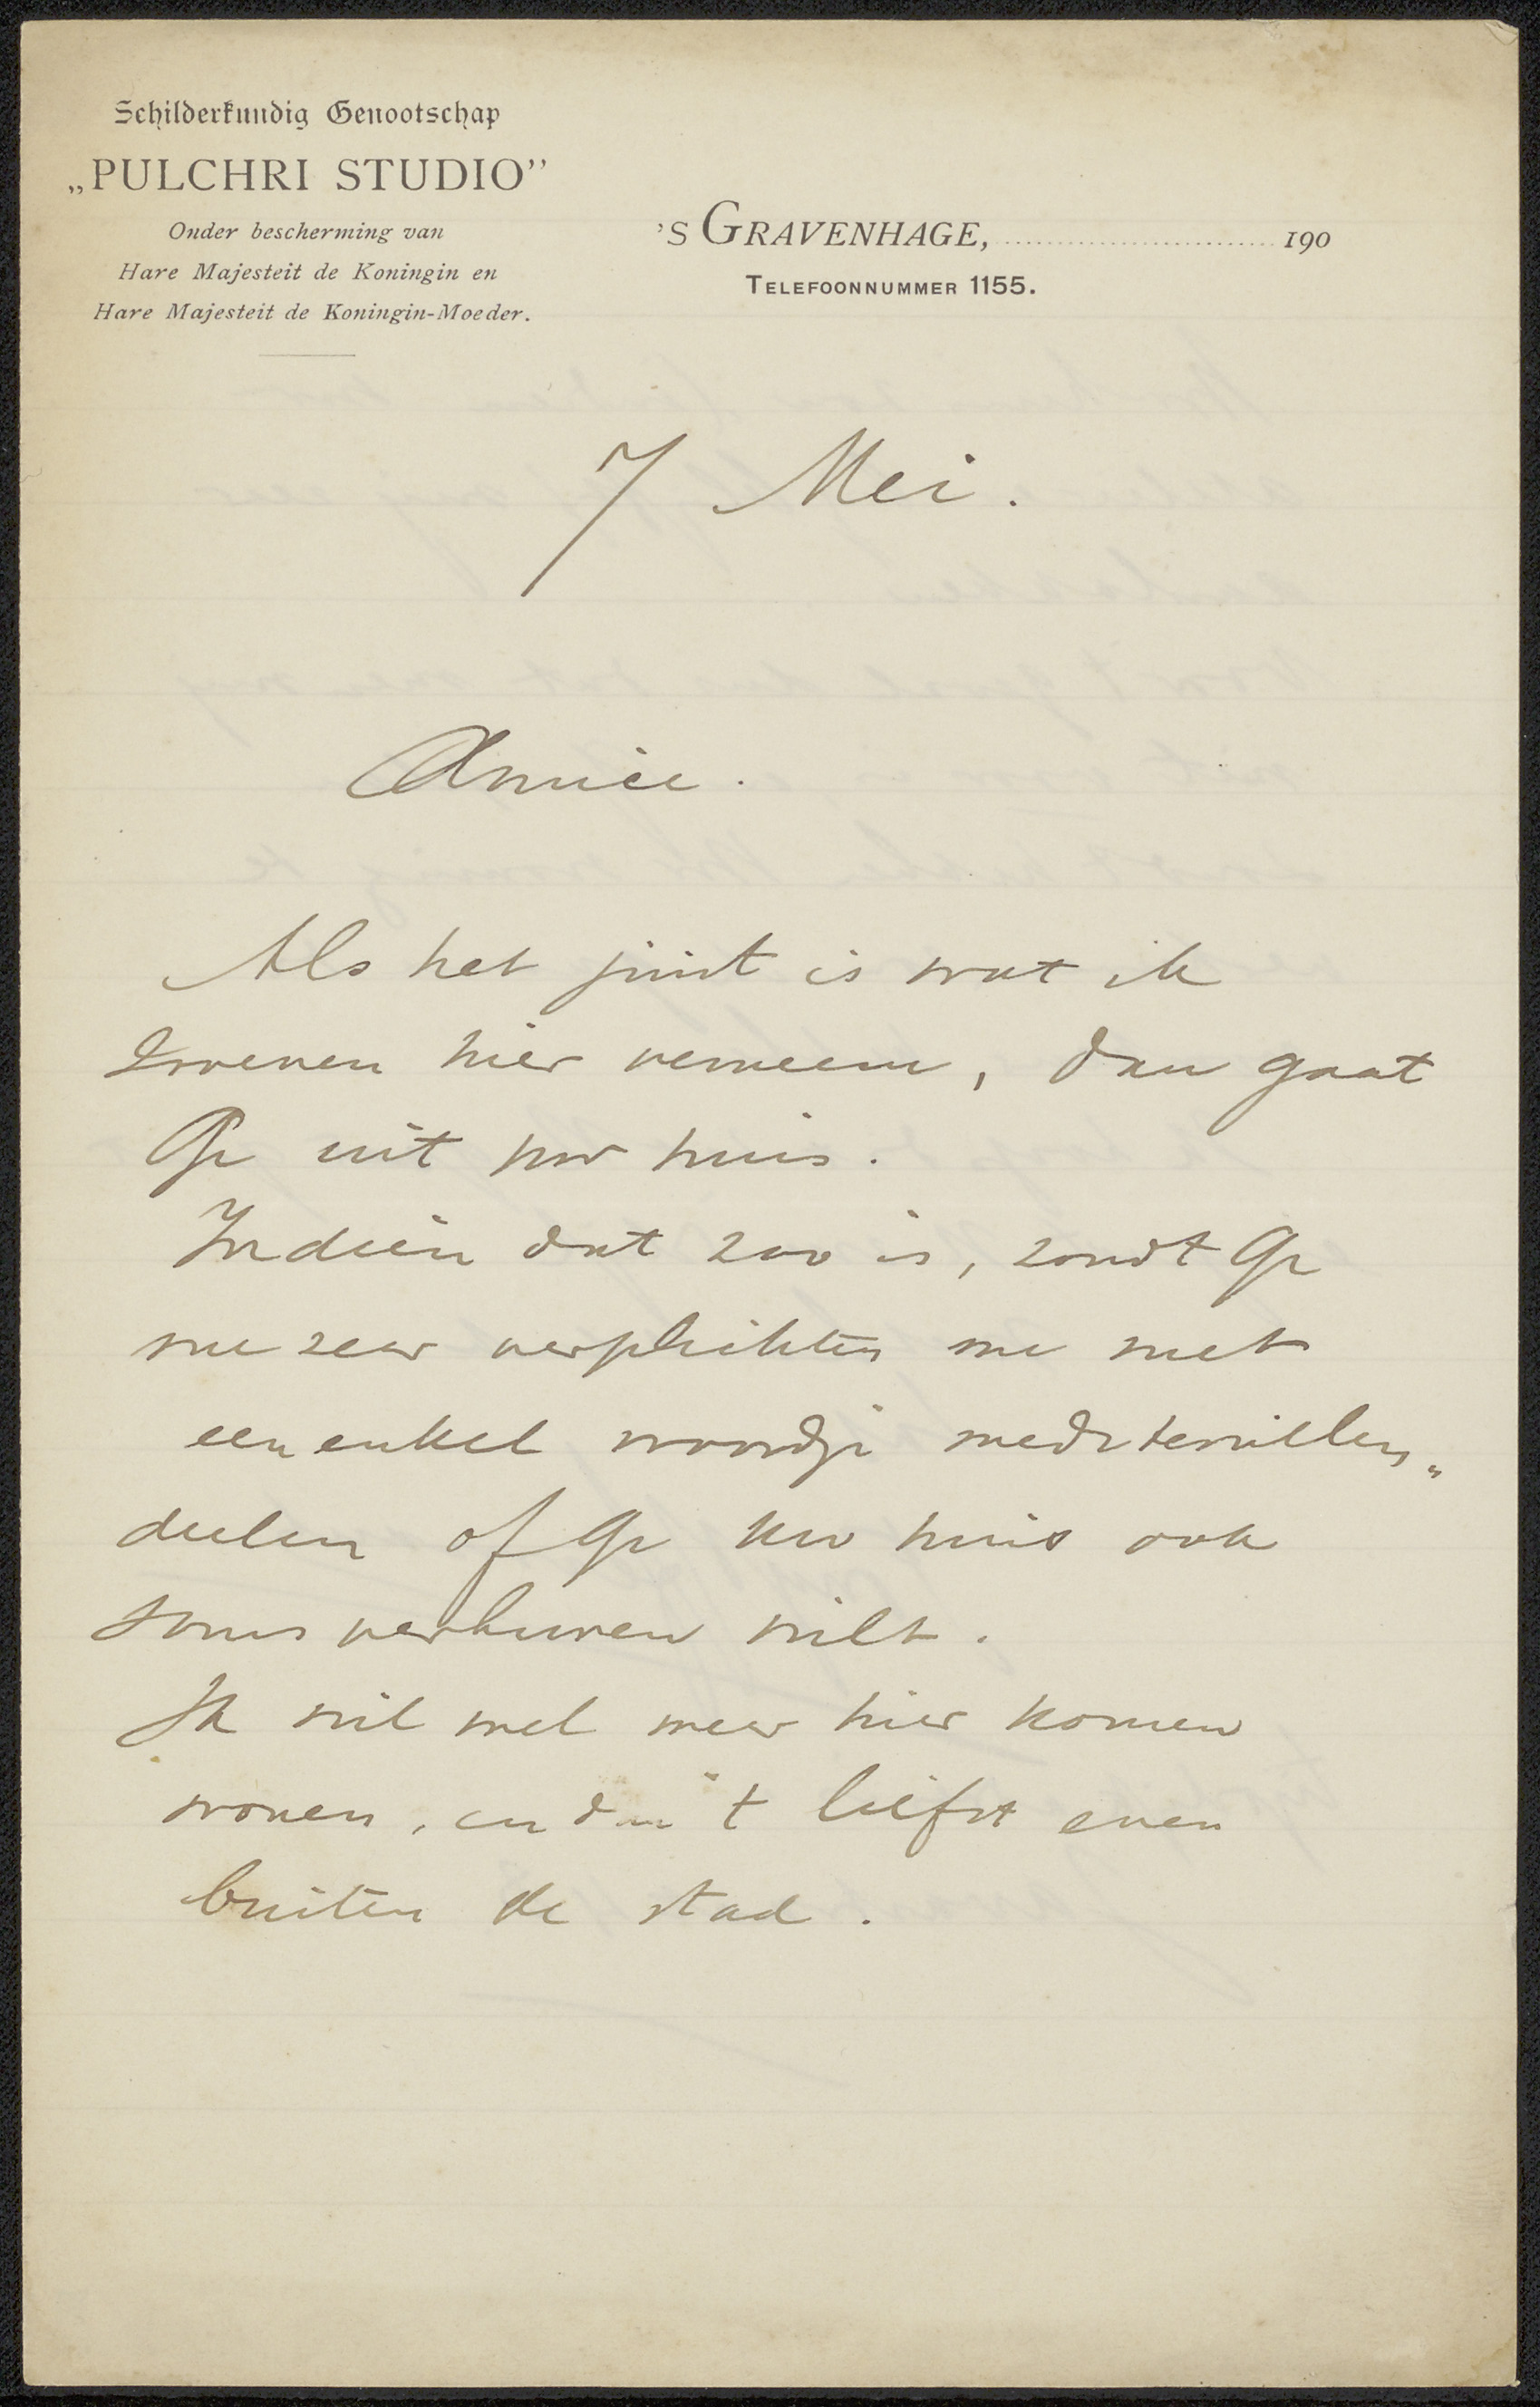 Schilderkundig Genootschap
„PULCHRI STUDIO”
Onder bescherming van
Hare Majesteit de Koningin en
Hare Majesteit de Koningin-Moeder.
'S GRAVENHAGE, 190
TELEFOONNUMMER 1155.
7 Mei.
Amice.
Als het juist is wat ik
zooeven hier verneem, dan gaat
Ge uit uw huis.
Indien dat zoo is, zoudt Ge
me zeer verplichten me met
een enkel woordje mede te willen„
deelen of Ge uw huis ook
soms verhuren wilt.
Ik wil wel weer hier komen
wonen, en dan 't liefst even
buiten de stad.